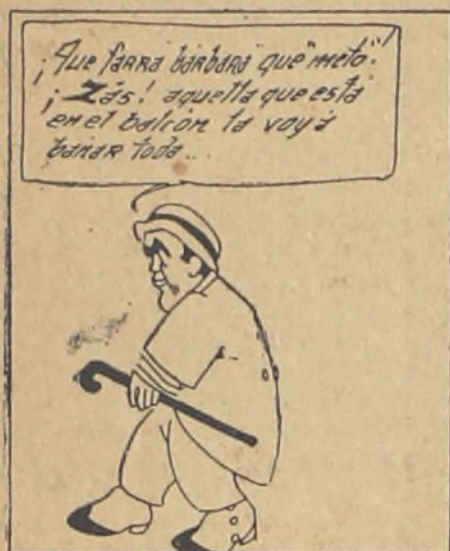 ¡Que farra bárbara que "meto"!
¡Zás! aquella que está
en el balcón la voy á
bañar toda...